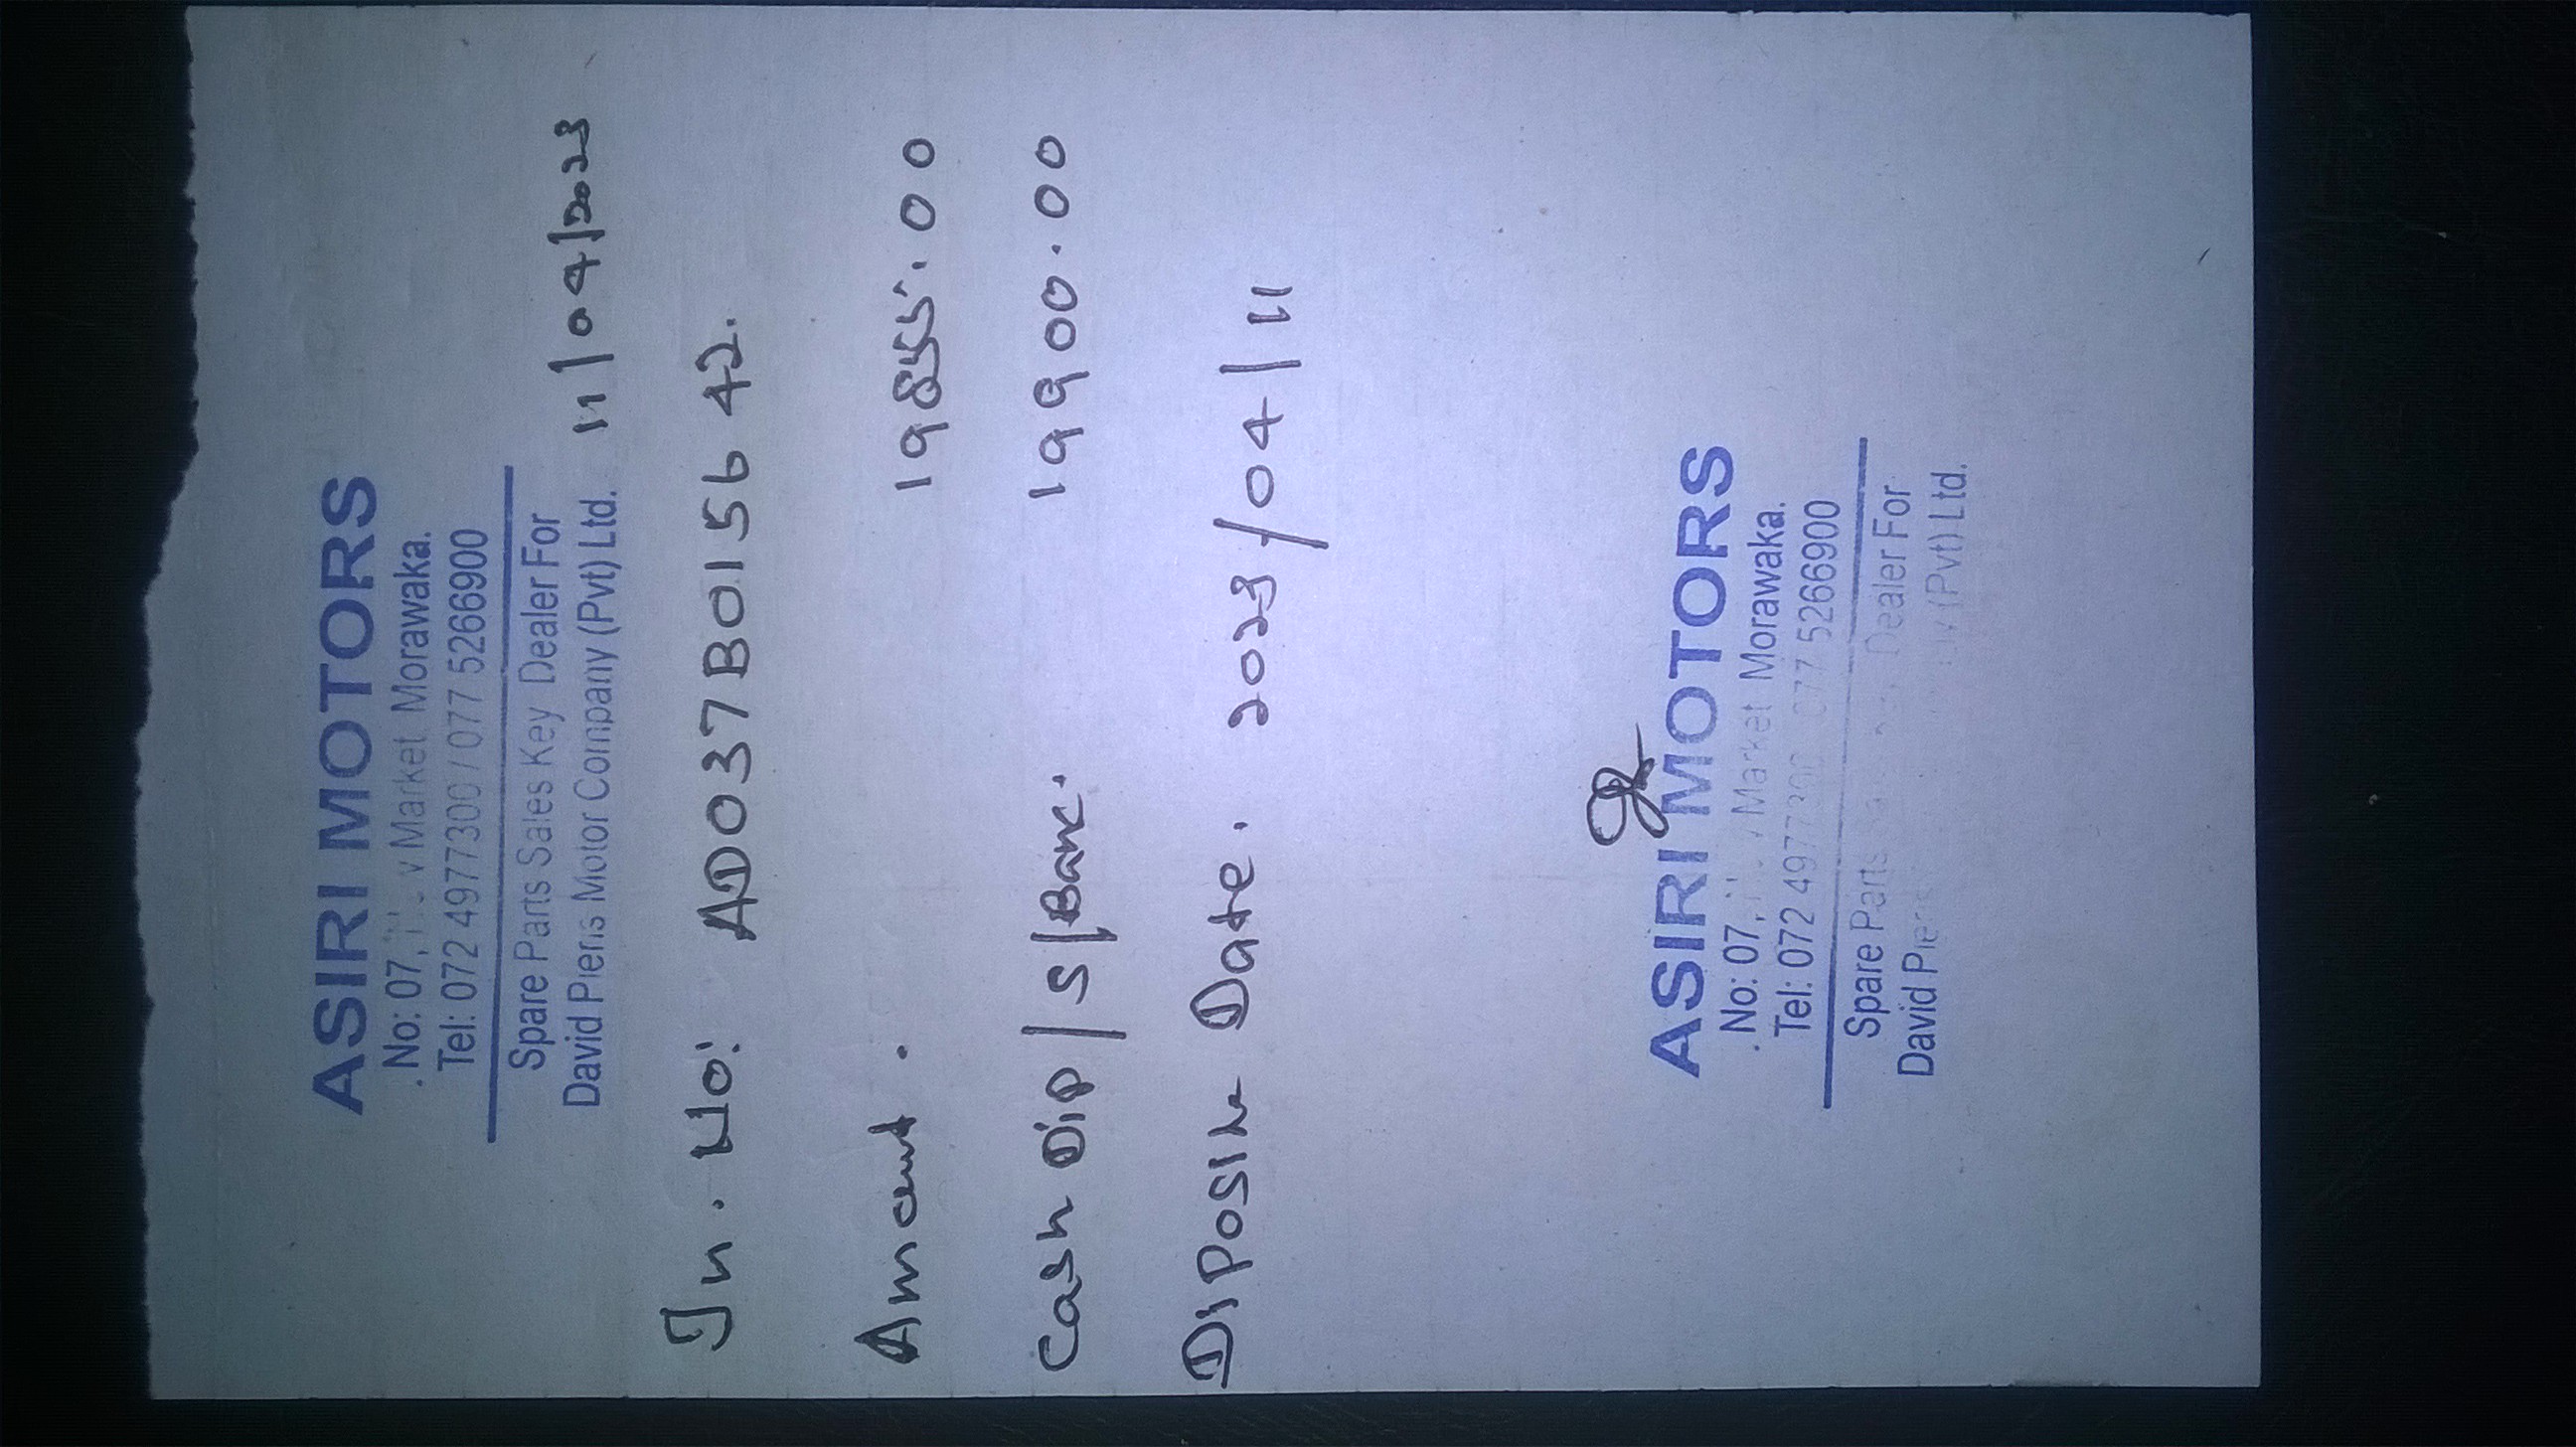 ASIRI MOTORS
. No: 07, New Market Morawaka.
Tel: 072 4977300 / 077 5266900
Spare Parts Sales Key Dealer For
David Pieris Motor Company (Pvt) Ltd.
11/04/2023
In. No: AD037B015642.
Amount. 19855.00
Cash Dip/S/Banc. 19900.00
Diposit Date. 2023/04/11
ASIRI MOTORS
. No: 07, Market Morawaka.
Tel: 072 4977300 077 5266900
Spare Parts Dealer For
David Pieris (Pvt) Ltd.